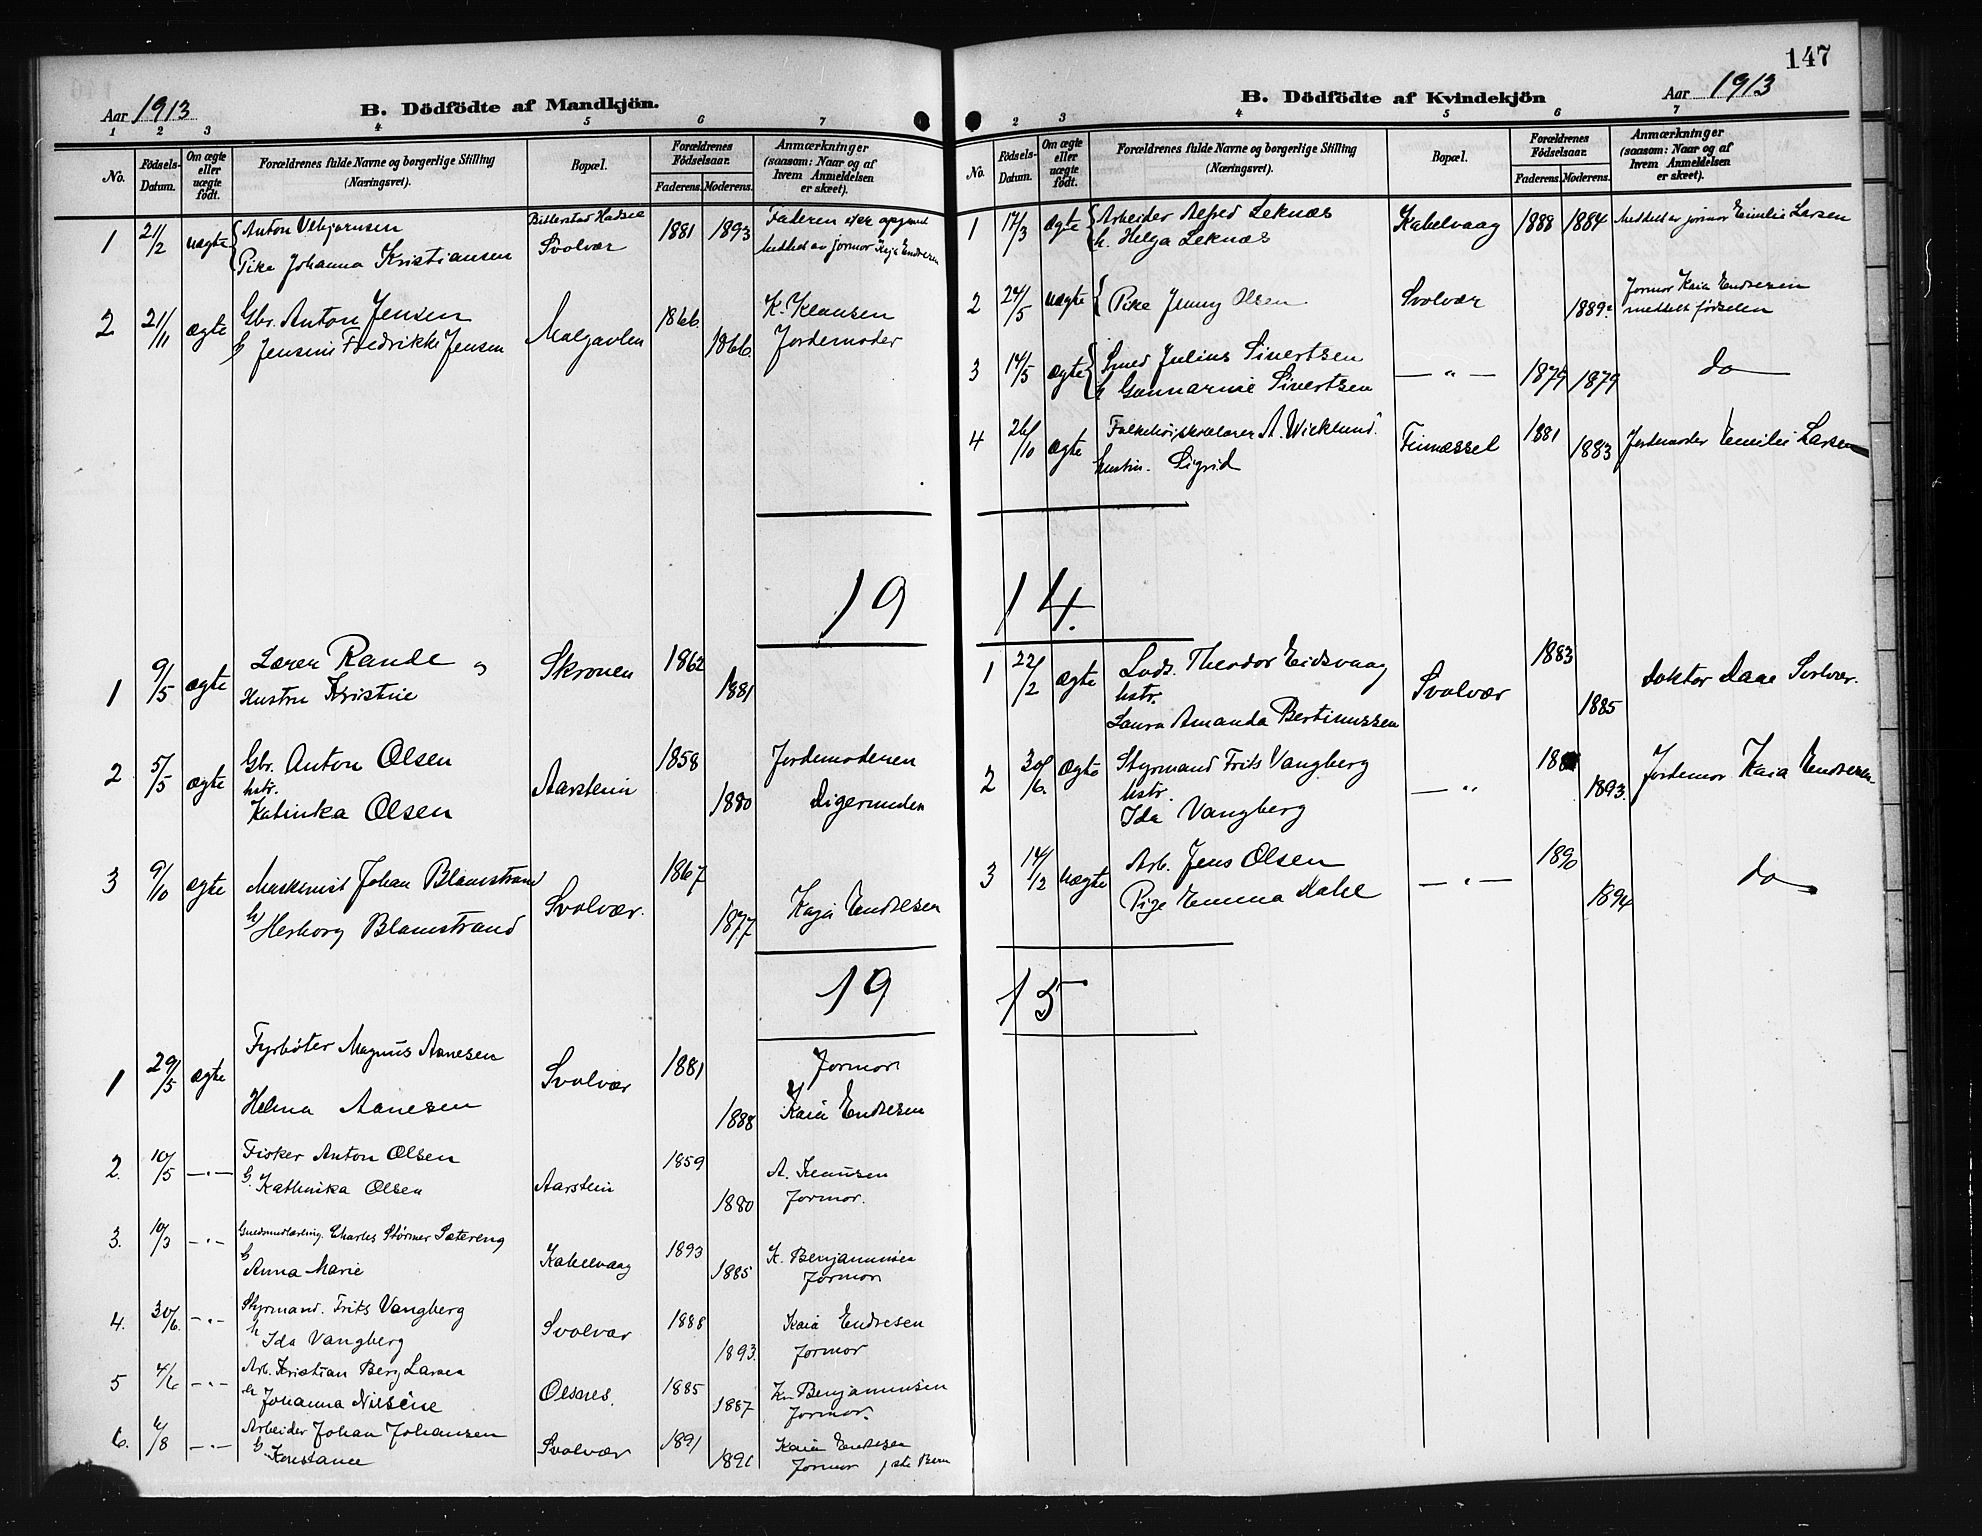 147
Aar 1913
B. Dödfödte af Mandkjön.
1 2 3 4 5 6 7
No.
Födsels-Datum.
Om ægte eller uægte födt.
Forældrenes fulde Navne og borgerlige Stilling (Næringsvei).
Bopæl.
Forældrenes Födselsaar.
Faderens. Moderens.
Anmærkninger (saasom: Naar og af hvem Anmeldelsen er skeet).
1 21/2 uægte Anton Vebjørnsen Bitterstad Hadsel 1881 1893 Faderen opgivet
Pike Johanna Kristiansen Svolvær Meddelt av jormor Kaja Endresen
2 21/11 ægte Gbr. Anton Jensen 1866 K. Klausen
h Jensine Fredrikke Jensen 1866 Jordemoder
19
1 9/5 ægte Lærer Rande Skroven 1862
Hustru Kristine 1881
2 5/5 ægte Gbr. Anton Olsen 1858 Jordemoderen
hstr. Aarstein 1880 Digermulen
Katinka Olsen
3 9/10 ægte Maskinist Johan Blamstrand 1867
h/ Herborg Blamstrand Svolvær. 1877 Kaja Endresen
19
1 29/5 ægte Fyrbøter Magnus Aanesen Svolvær 1881 Jormor
Helma Aanesen 1888 Kaia Endresen
2. 10/5 —"— Fisker Anton Olsen 1859
h. Kathinka Olsen Aarstein 1880 Jormor.
3. 10/3 —"— Charles Størmer Sætereng 1893 K. Benjaminsen
h Anna Marie Kabelvaag 1885 Jormor
4. 30/6 —"— Styrmand. Frits Vangberg 1888 Kaia Endresen
h Ida Vangberg Svolvær 1893. Jormor
5 4/6 —"— Arb. Kristian Berg Larsen 1885 Kr. Benjaminsen
h Johanna Olsnes. 1887 Jormor.
6. 6/8 —"— Arbeider Johan Johansen 1891 Kaia Endresen
h. Konstance Svolvær 1891 Jormor
Aar 1913
B. Dödfödte af Kvindekjön
2 3 4 5 6 7
No.
Födsels-Datum.
Om ægte eller uægte födt.
Forældrenes fulde Navne og borgerlige Stilling (Næringsvei).
Bopæl.
Forældrenes Födselsaar.
Faderens. Moderens.
Anmærkninger (saasom: Naar og af hvem Anmeldelsen er skeet).
1 17/3 ægte Arbeider Alfred Leknæs Kabelvaag 1888 1884 Meddelt av jormor Emilie Larsen
h. Helga Leknæs
2 24/5 uægte Pike Jenny Olsen Svolvær 1889? Jormor Kaia Endresen
meddelt fødselen
3 14/5 ægte Smed Julius Sivertsen —"— 1879 1879 do
h Gunnarine Sivertsen
4 26/10 ægte Folkehøiskolelærer A. Wicklund. 1881 1883 Jordemoder Emilie Larsen
hustru. Sigrid
14.
1 22/2 ægte Lods. Theodor Eidsvaag 1883 Doktor Daae Svolvær.
hstr. Svolvær 1885
Laura Amanda Bertinussen
2 30/6. ægte Styrmand Frits Vangberg Jordemor Kaia Endresen
hstr. —"— 1893.
Ida Vangberg
3 14/12 uægte Arb. Jens Olsen —"— 1890 do
Pige Emma 1894
15